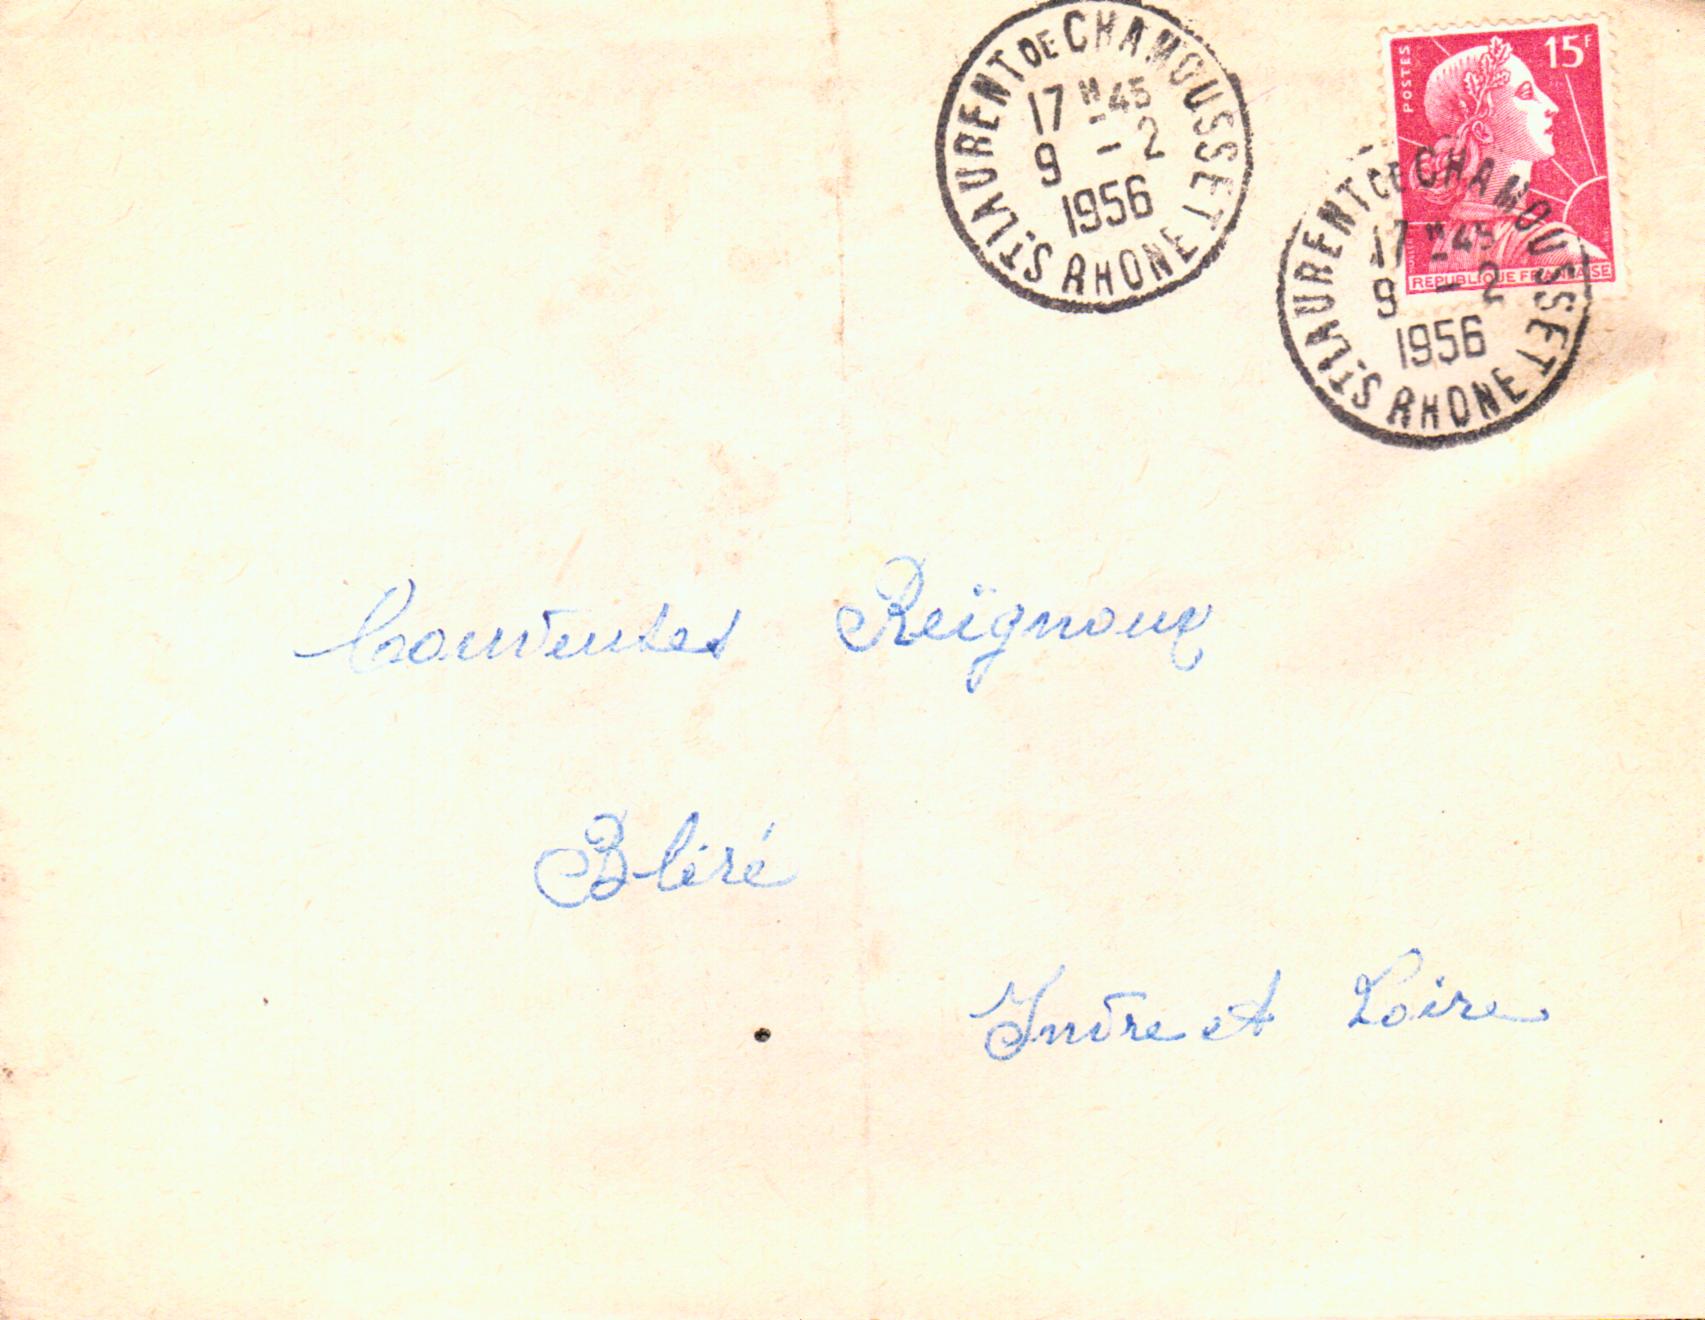 ST LAURENT DE CHAMOUSSET
17 H 45
9 - 2
1956
RHONE
POSTES
15F
REPUBLIQUE FRANCAISE
ST LAURENT DE CHAMOUSSET
17 H 45
9 - 2
1956
RHONE
Couveuses Reïgnoux
Bléré
Indre et Loire